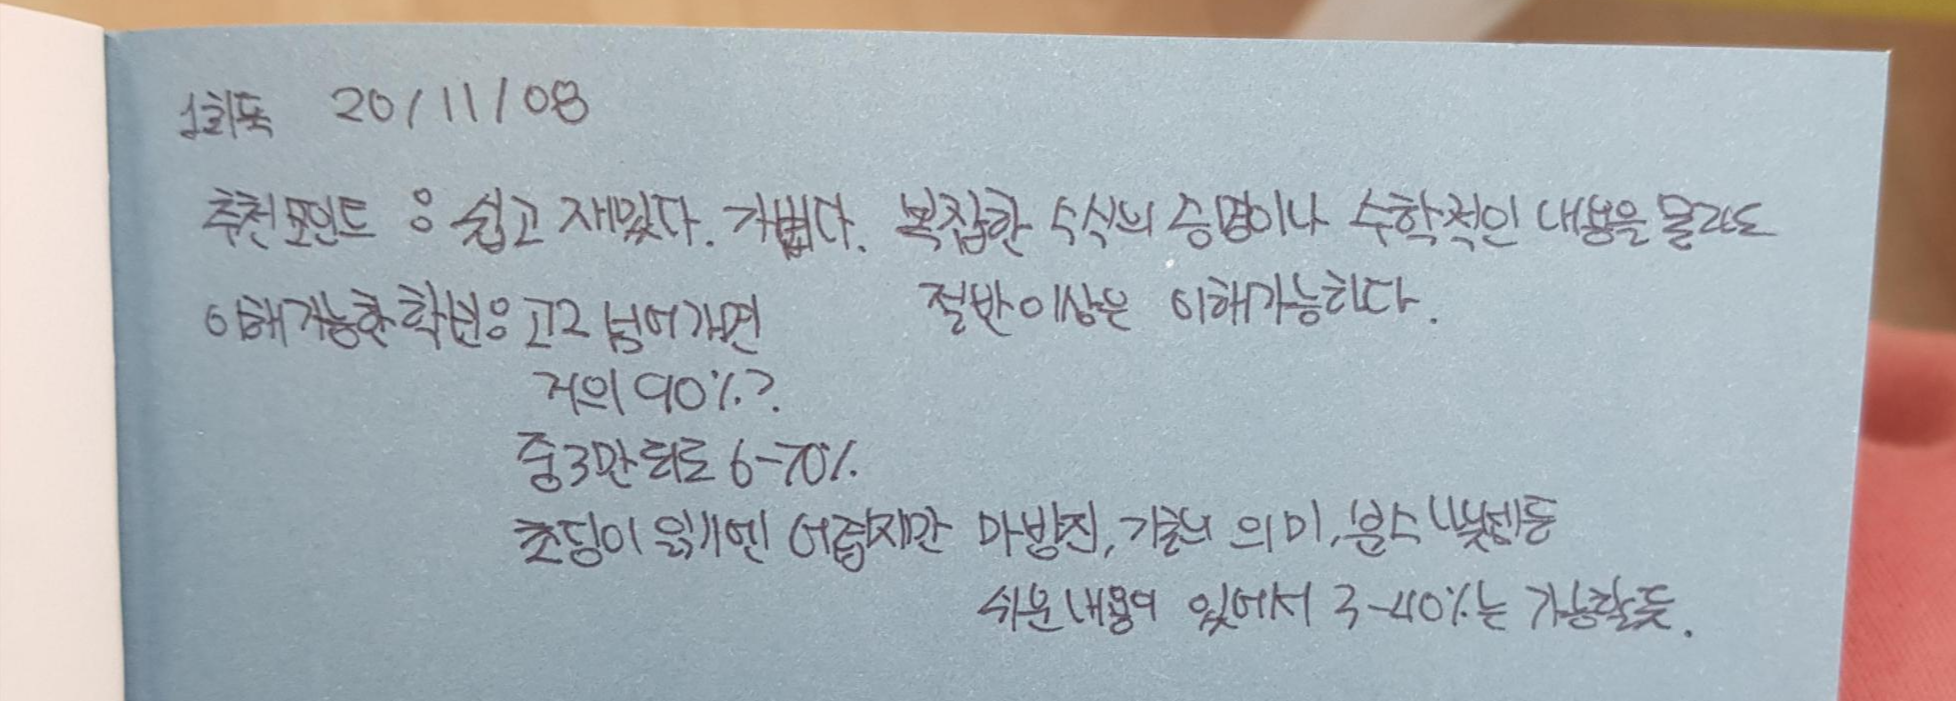 1회독 20/11/08
추천포인트 : 쉽고 재밌다. 가볍다. 복잡한 수식의 증명이나 수학적인 내용을 몰라도
절반이상은 이해가능하다.
이해가능한 학년 : 고2 넘어가면
거의 90%?
중3만 되도 6-70%
초딩이 읽기엔 어렵지만 마방진, 기호의 의미, 분수 덧셈등
쉬운내용이 있어서 3-40%는 가능할듯.